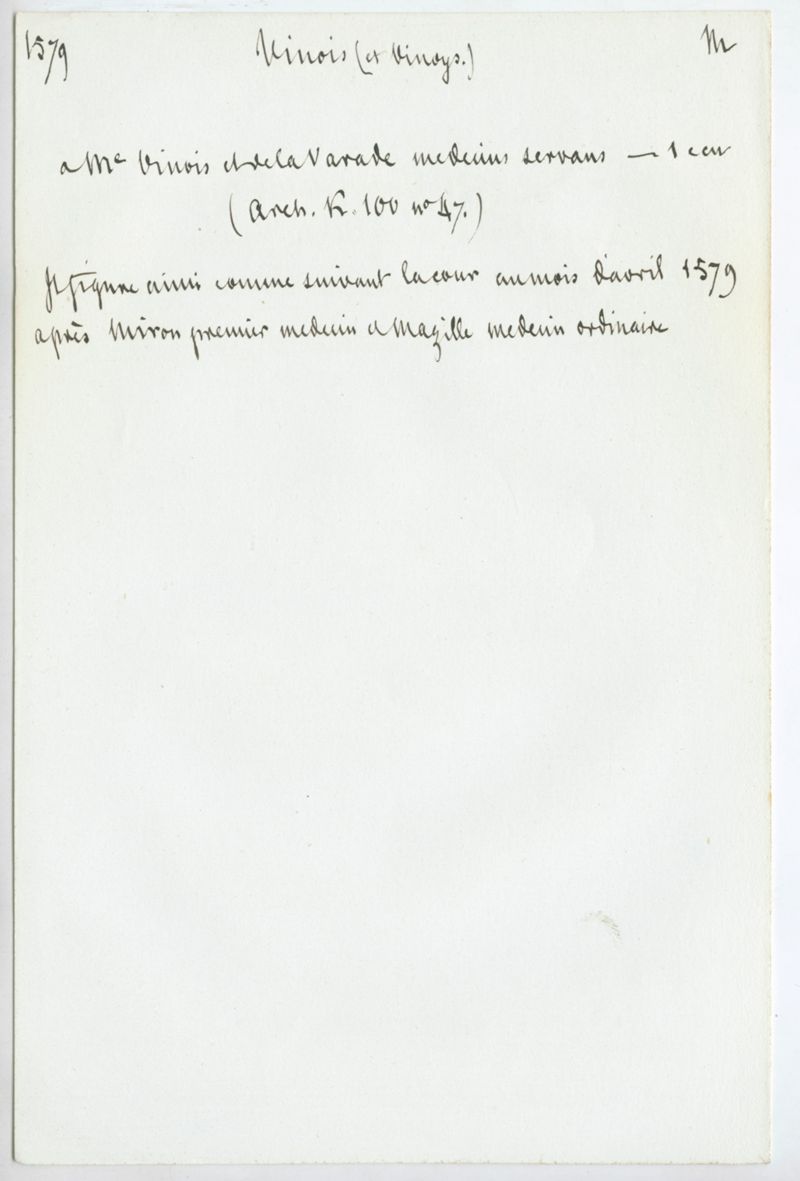 1579 Vinois (et Vinoys.) M
a Me Vinois et de la Varade medecins servans — 1 ecu
(Arch. K. 100 no 47.)
Il figure ainsi comme suivant la cour au mois d'avril 1579
après Miron premier medecin et Mazille medecin ordinaire